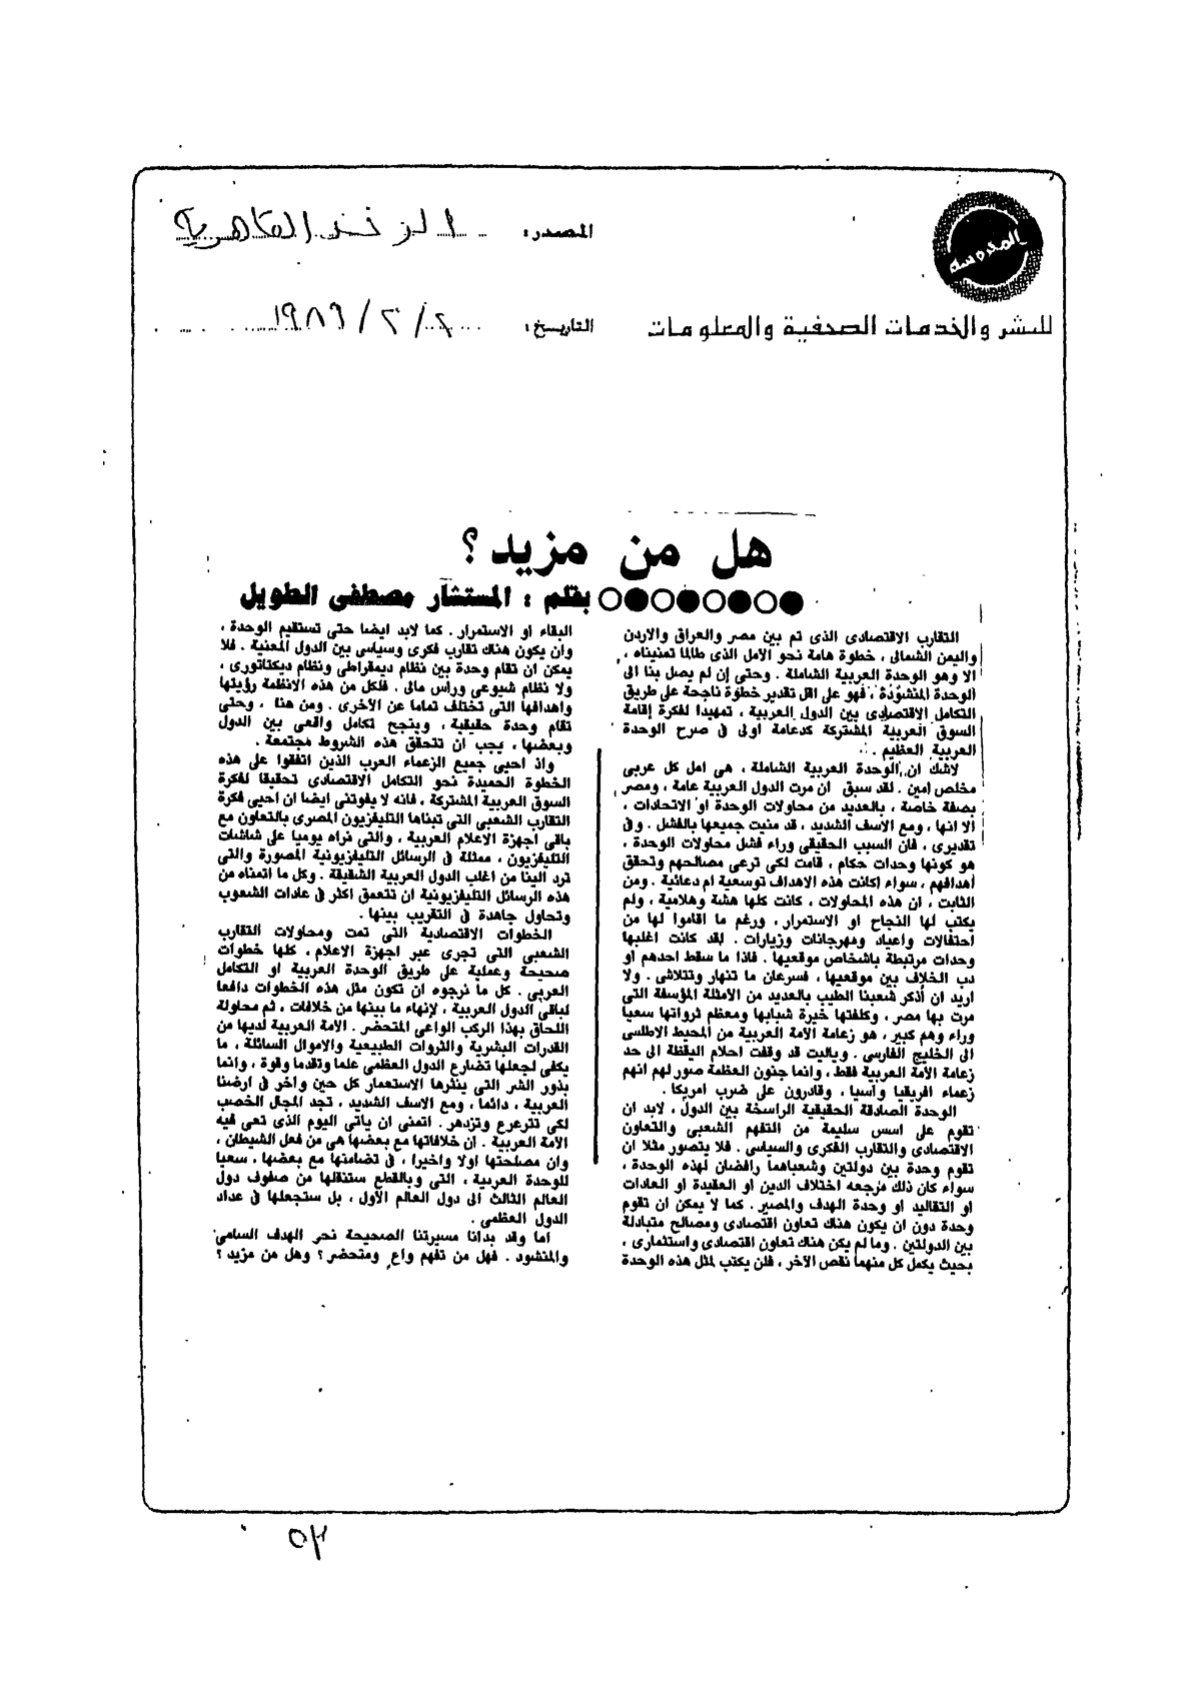 المحروسة
للنشر والخدمات الصحفية والمعلومات
المصدر : الوفد القاهرية
التاريخ : ٢/٣/١٩٨٩
هل من مزيد ؟
بقلم : المستشار مصطفى الطويل
التقارب الاقتصادى الذى تم بين مصر والعراق والاردن
واليمن الشمالى ، خطوة هامة نحو الأمل الذى طالما تمنيناه ،
الا وهو الوحدة العربية الشاملة . وحتى إن لم يصل بنا الى
الوحدة المنشودة ، فهو على اقل تقدير خطوة ناجحة على طريق
التكامل الاقتصادى بين الدول العربية ، تمهيدا لفكرة إقامة
السوق العربية المشتركة كدعامة اولى فى صرح الوحدة
العربية العظيم .
لاشك ان الوحدة العربية الشاملة ، هى امل كل عربى
مخلص امين . لقد سبق ان مرت الدول العربية عامة ، ومصر
بصفة خاصة ، بالعديد من محاولات الوحدة او الاتحادات ،
الا انها ، ومع الاسف الشديد ، قد منيت جميعها بالفشل . وفى
تقديرى ، فان السبب الحقيقى وراء فشل محاولات الوحدة ،
هو كونها وحدات حكام ، قامت لكى ترعى مصالحهم وتحقق
أهدافهم ، سواء اكانت هذه الاهداف توسعية ام دعائية . ومن
الثابت ، ان هذه المحاولات ، كانت كلها هشة وهلامية ، ولم
يكتب لها النجاح او الاستمرار ، ورغم ما اقاموا لها من
احتفالات واعياد ومهرجانات وزيارات . لقد كانت اغلبها
وحدات مرتبطة باشخاص موقعيها . فاذا ما سقط احدهم أو
دب الخلاف بين موقعيها ، فسرعان ما تنهار وتتلاشى . ولا
اريد ان أذكر شعبنا الطيب بالعديد من الامثلة المؤسفة التى
مرت بها مصر ، وكلفتها خيرة شبابها ومعظم ثرواتها سعيا
وراء وهم كبير ، هو زعامة الأمة العربية من المحيط الاطلسى
الى الخليج الفارسى . وياليت قد وقفت احلام اليقظة الى حد
زعامة الأمة العربية فقط ، وانما جنون العظمة صور لهم انهم
زعماء افريقيا وآسيا ، وقادرون على ضرب امريكا .
الوحدة الصادقة الحقيقية الراسخة بين الدول ، لابد ان
تقوم على اسس سليمة من التفهم الشعبى والتعاون
الاقتصادى والتقارب الفكرى والسياسى . فلا يتصور مثلا ان
تقوم وحدة بين دولتين وشعباهما رافضان لهذه الوحدة ،
سواء كان ذلك مرجعه اختلاف الدين او العقيدة او العادات
او التقاليد او وحدة الهدف والمصير . كما لا يمكن ان تقوم
وحدة دون ان يكون هناك تعاون اقتصادى ومصالح متبادلة
بين الدولتين . وما لم يكن هناك تعاون اقتصادى واستثمارى ،
بحيث يكمل كل منهما نقص الآخر ، فلن يكتب لمثل هذه الوحدة
البقاء او الاستمرار . كما لابد ايضا حتى تستقيم الوحدة ،
وان يكون هناك تقارب فكرى وسياسى بين الدول المعنية . فلا
يمكن ان تقام وحدة بين نظام ديمقراطى ونظام ديكتاتورى ،
ولا نظام شيوعى ورأس مالى . فلكل من هذه الانظمة رؤيتها
واهدافها التى تختلف تماما عن الأخرى . ومن هنا ، وحتى
تقام وحدة حقيقية ، وينجح تكامل واقعى بين الدول
وبعضها ، يجب ان تتحقق هذه الشروط مجتمعة .
واذ احيى جميع الزعماء العرب الذين اتفقوا على هذه
الخطوة الحميدة نحو التكامل الاقتصادى تحقيقا لفكرة
السوق العربية المشتركة ، فانه لا يفوتنى ايضا ان احيى فكرة
التقارب الشعبى التى تبناها التليفزيون المصرى بالتعاون مع
باقى اجهزة الاعلام العربية ، والتى نراه يوميا على شاشات
التليفزيون ، ممثلة فى الرسائل التليفزيونية المصورة والتى
ترد الينا من اغلب الدول العربية الشقيقة . وكل ما اتمناه من
هذه الرسائل التليفزيونية ان تتعمق اكثر فى عادات الشعوب
وتحاول جاهدة فى التقريب بينها .
الخطوات الاقتصادية التى تمت ومحاولات التقارب
الشعبى التى تجرى عبر اجهزة الاعلام ، كلها خطوات
صحيحة وعملية على طريق الوحدة العربية او التكامل
العربى . كل ما نرجوه ان تكون مثل هذه الخطوات دافعا
لباقى الدول العربية ، لإنهاء ما بينها من خلافات ، ثم محاولة
اللحاق بهذا الركب الواعى المتحضر . الأمة العربية لديها من
القدرات البشرية والثروات الطبيعية والاموال السائلة ، ما
يكفى لجعلها تضارع الدول العظمى علما وتقدما وقوة ، وانما
بذور الشر التى ينثرها الاستعمار كل حين وآخر فى ارضنا
العربية ، دائما ، ومع الاسف الشديد ، تجد المجال الخصب
لكى تترعرع وتزدهر . اتمنى ان ياتى اليوم الذى تعى فيه
الأمة العربية . ان خلافاتها مع بعضها هى من فعل الشيطان ،
وان مصلحتها اولا واخيرا ، فى تضامنها مع بعضها ، سعيا
للوحدة العربية ، التى وبالقطع ستنقلها من صفوف دول
العالم الثالث الى دول العالم الأول ، بل ستجعلها فى عداد
الدول العظمى .
اما وقد بدأنا مسيرتنا الصحيحة نحو الهدف السامى
والمنشود . فهل من تفهم واع ومتحضر ؟ وهل من مزيد ؟
٥٢